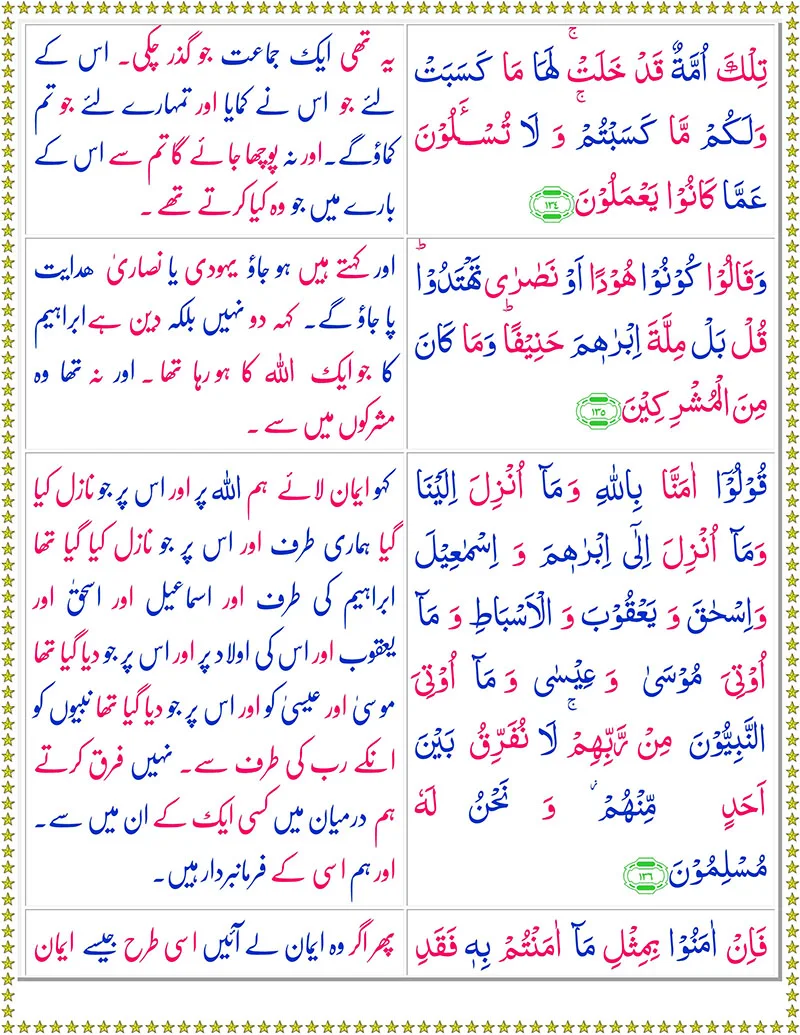 تِلْكَ اُمَّةٌ قَدْ خَلَتْ ۚ لَهَا مَا كَسَبَتْ
وَلَكُمْ مَّا كَسَبْتُمْ ۚ وَ لَا تُسْـَٔلُوْنَ
عَمَّا كَانُوْا يَعْمَلُوْنَ ١٣٤
یہ تھی ایک جماعت جو گذر چکی۔ اس کے
لئے جو اس نے کمایا اور تمہارے لئے جو تم
کماؤگے۔اور نہ پوچھا جائے گا تم سے اس کے
بارے میں جو وہ کیا کرتے تھے ۔
وَقَالُوْا كُوْنُوْا هُوْدًا اَوْ نَصٰرٰى تَهْتَدُوْا ؕ
قُلْ بَلْ مِلَّةَ اِبْرٰهٖمَ حَنِيْفًا ؕ وَمَا كَانَ
مِنَ الْمُشْرِكِيْنَ ١٣٥
اور کہتے ہیں ہو جاؤ یہودی یا نصاریٰ ھدایت
پا جاؤ گے۔ کہہ دو نہیں بلکہ دین ہے ابراہیم
کا جو ایک اللہ کا ہو رہا تھا ۔ اور نہ تھا وہ
مشرکوں میں سے ۔
قُوْلُوْٓا اٰمَنَّا بِاللّٰهِ وَمَآ اُنْزِلَ اِلَيْنَا
وَمَآ اُنْزِلَ اِلٰٓى اِبْرٰهٖمَ وَ اِسْمٰعِيْلَ
وَاِسْحٰقَ وَ يَعْقُوْبَ وَ الْاَسْبَاطِ وَ مَآ
اُوْتِىَ مُوْسٰى وَ عِيْسٰى وَ مَآ اُوْتِىَ
النَّبِيُّوْنَ مِنْ رَّبِّهِمْ ۚ لَا نُفَرِّقُ بَيْنَ
اَحَدٍ مِّنْهُمْ ۖ وَ نَحْنُ لَهٗ
مُسْلِمُوْنَ ١٣٦
کہو ایمان لائے ہم اللہ پر اور اس پر جو نازل کیا
گیا ہماری طرف اور اس پر جو نازل کیا گیا تھا
ابراہیم کی طرف اور اسماعیل اور اسحٰق اور
یعقوب اور اس کی اولاد پر اور اس پر جو دیا گیا تھا
موسیٰ اور عیسیٰ کو اور اس پر جو دیا گیا تھا نبیوں کو
انکے رب کی طرف سے۔ نہیں فرق کرتے
ہم درمیان میں کسی ایک کے ان میں سے۔
اور ہم اسی کے فرمانبردار ہیں۔
فَاِنْ اٰمَنُوْا بِمِثْلِ مَآ اٰمَنْتُمْ بِهٖ فَقَدِ
پھر اگر وہ ایمان لے آئیں اسی طرح جیسے ایمان